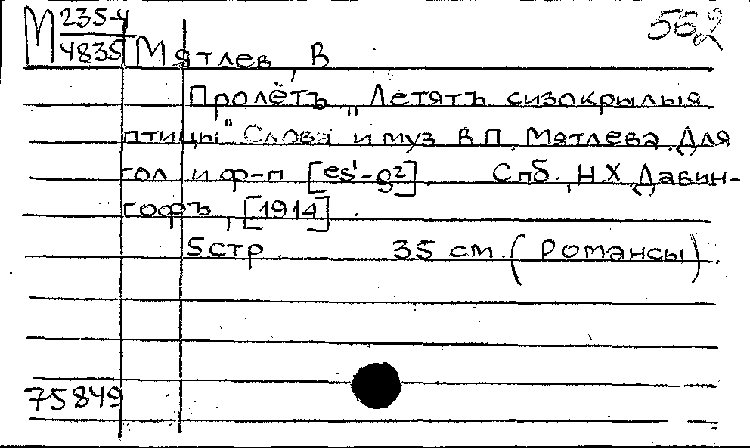 М 235-4 562
4835 Мятлев, В
Пролётъ "Летятъ сизокрылыя
птицы" Слова и муз В.П. Мятлева. Для
гол и ф-п [es¹-g²] Спб., Н.Х. Давин-
гофъ, [1914].
5 стр 35 см. (Романсы)
75849